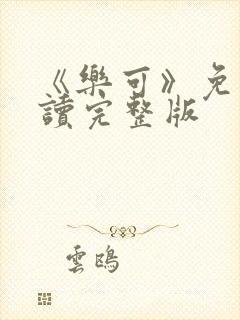 《樂可》免
讀完整版
雲鴎